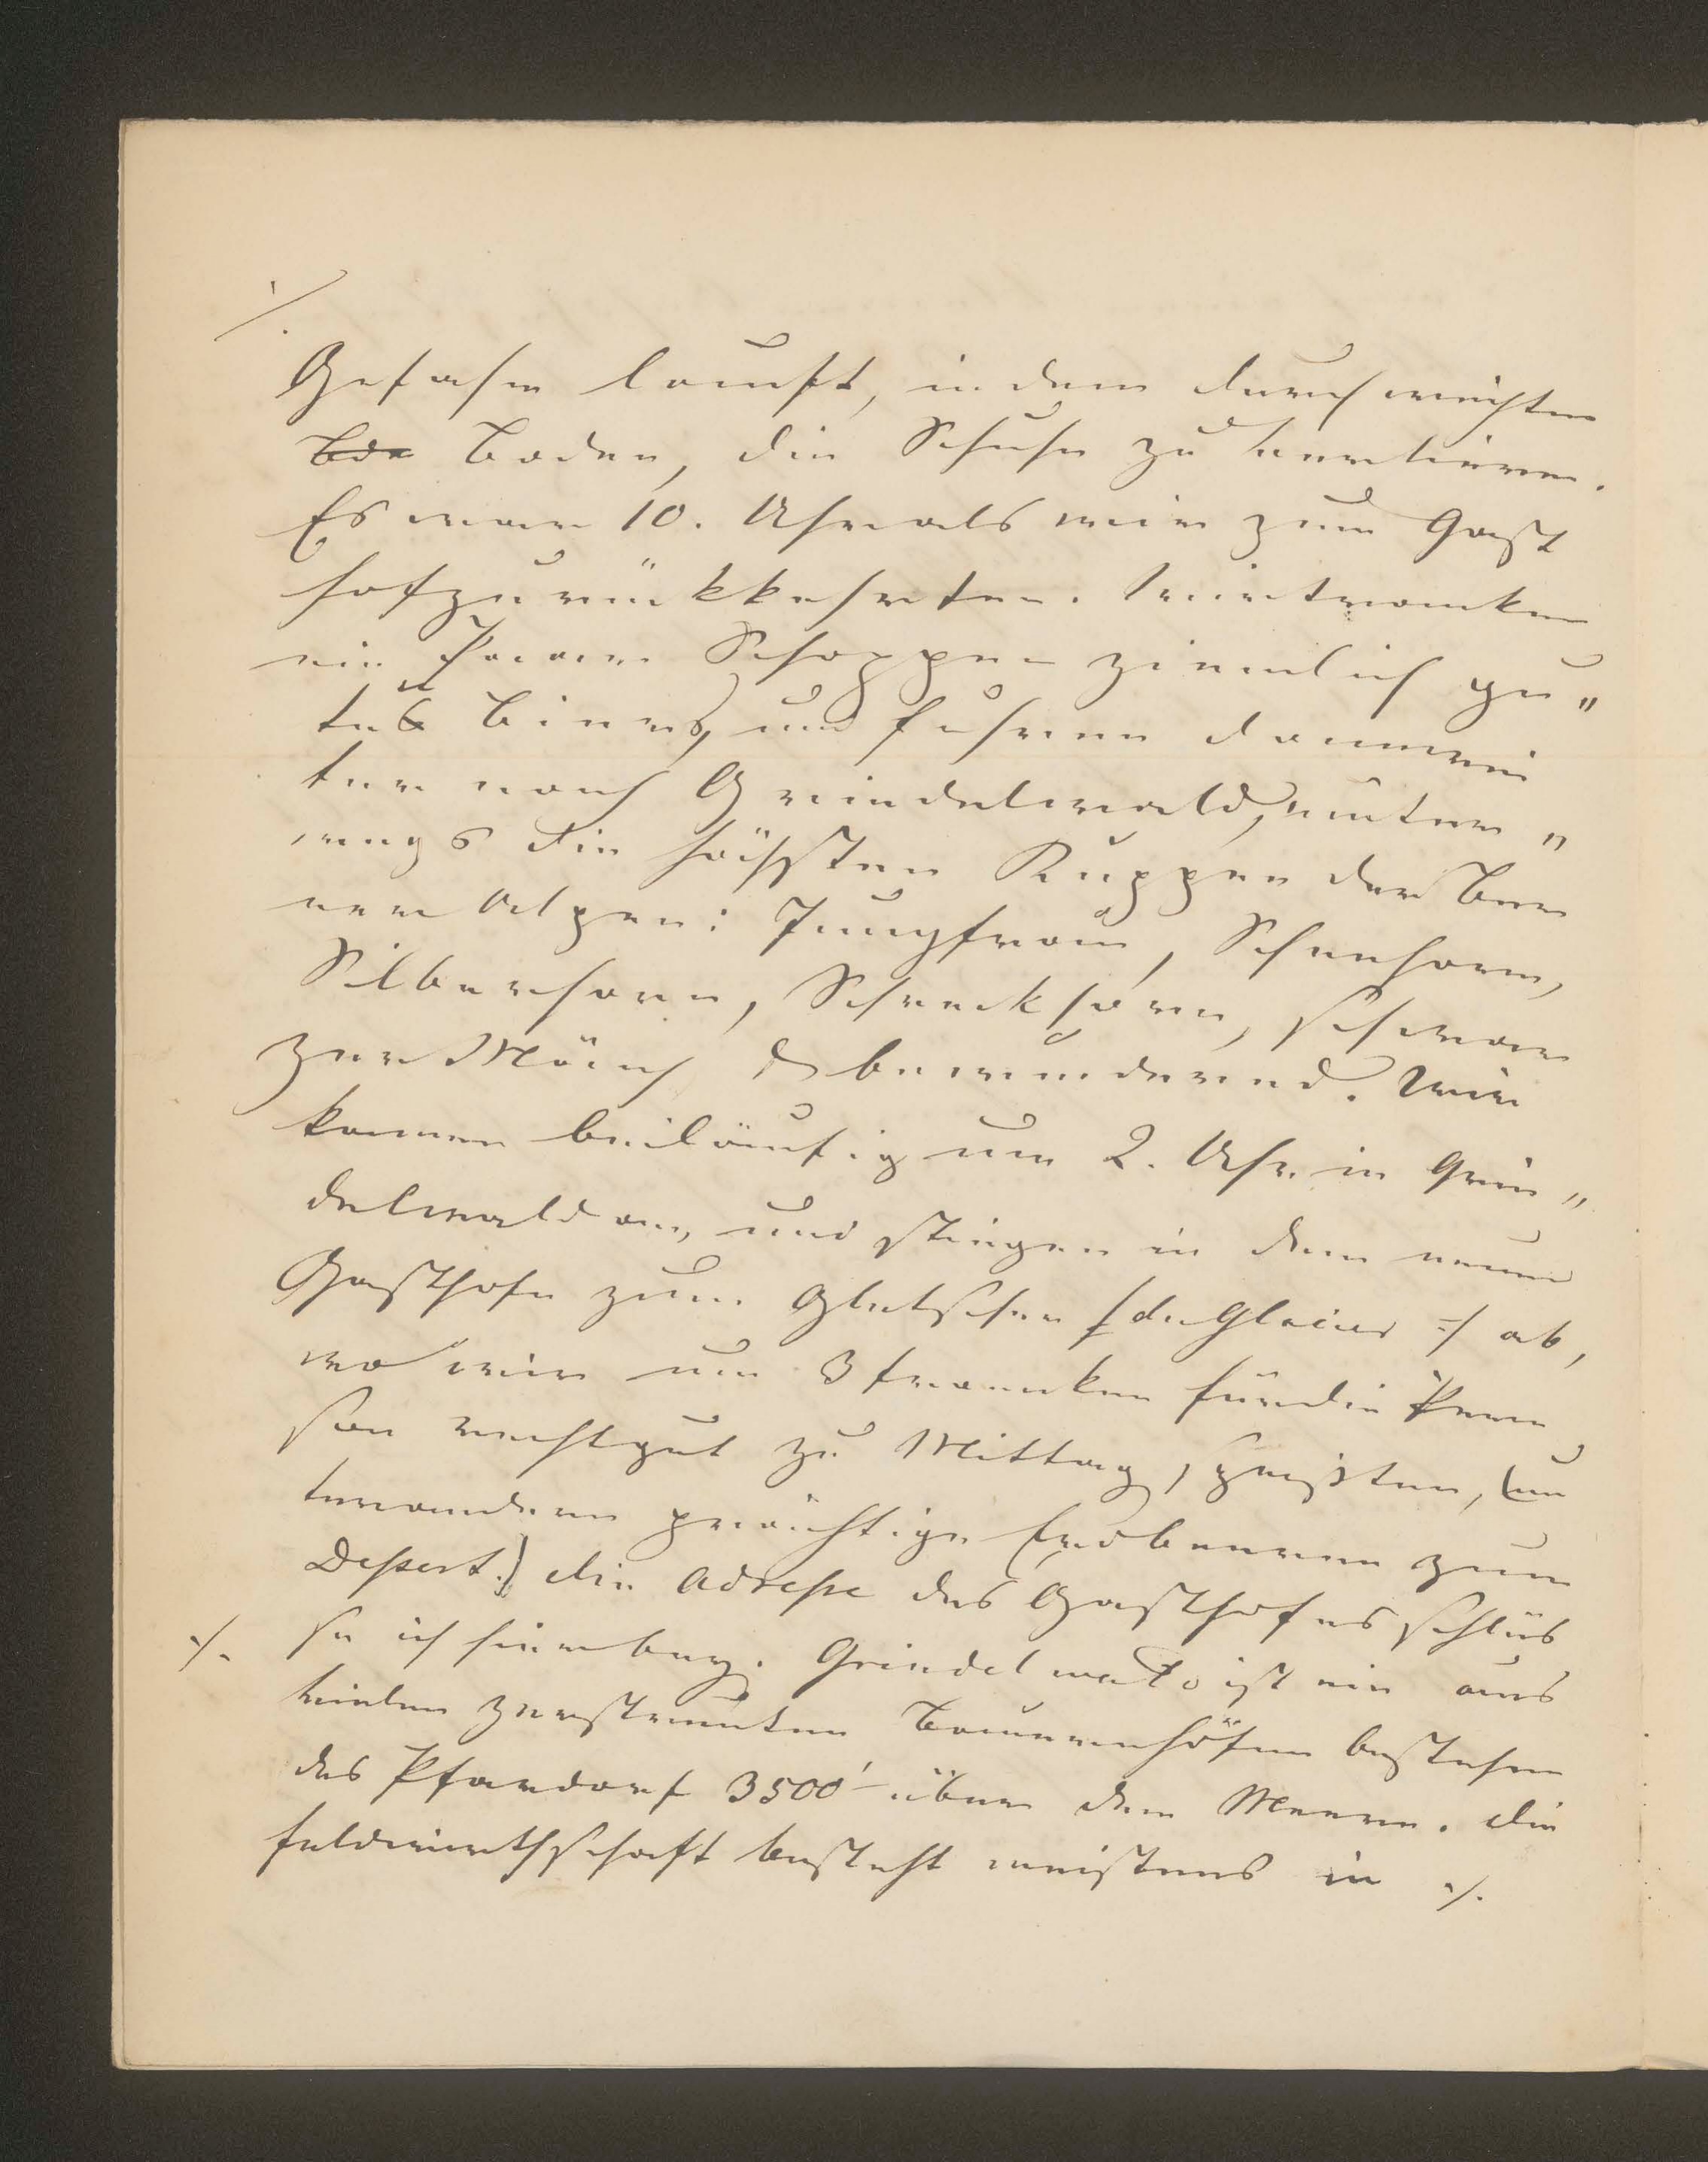 ./.
Gefahr lauft, in dem durchweichten
Bde Boden, die Schuhe zu verlieren.
Es war 10. Uhr als wir zum Gast
hof zurückkehrten. Wir tranken
ein Paar Schoppen ziemlich gu„
tes Biers, und fuhren dann wei
ter nach Grindelwald, unter„
wegs die höchsten Kuppen der Ber
ner Alpen: Jungfrau, Scheehorn,
Silberhorn, Schreckhorn, schwar
zer Mönch & bewundernd. Wir
kamen beiläufig um 2. Uhr in Grin„
delwald an, und stiegen in dem neuen
Gasthofe zum Gletscher /: du Glacier :/ ab,
wo wir um 3 franken für die Per
son recht gut zu Mittag speisten, (un
ter andern prächtige Erdbeeren zum
Dessert.) die Adresse des Gasthofes schlüs
se ich hier bey. Grindelwald ist ein aus
./. vielen zerstreuten Bauernhöfen bestehen
des Pfardorf 3500' über dem Meere. die
feldwirthschaft besteht meistens in ./.